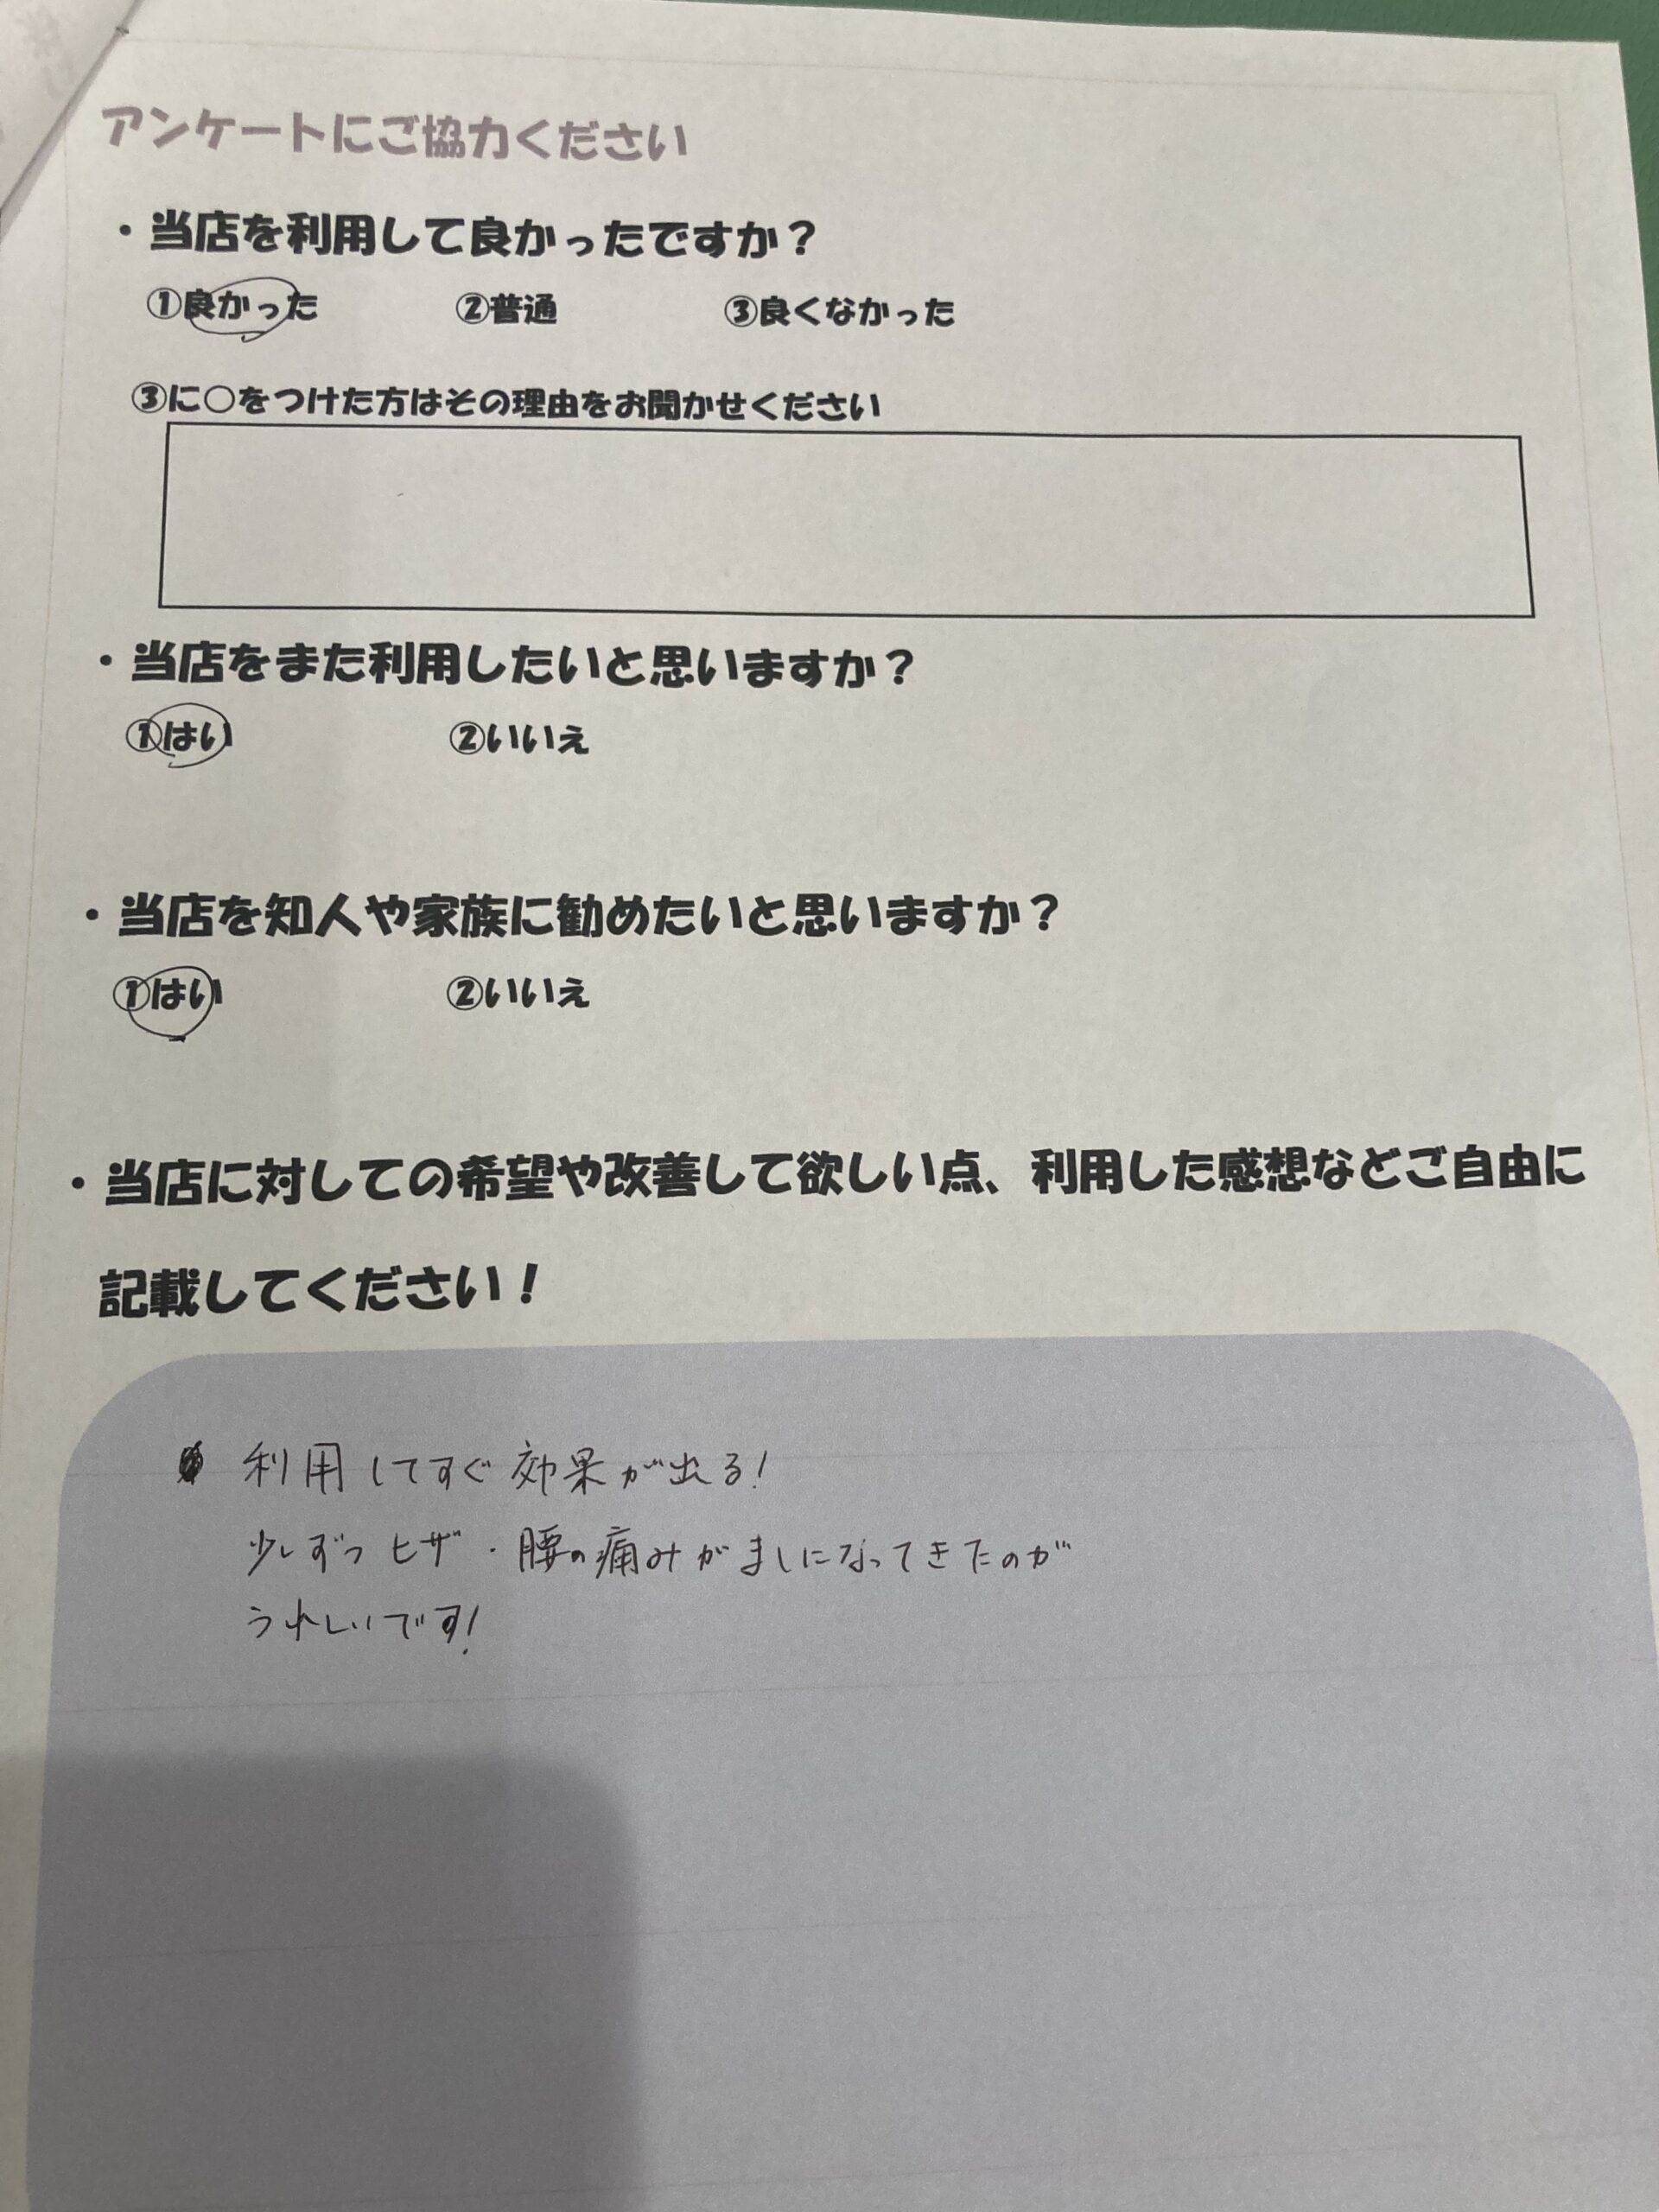 アンケートにご協力ください
・当店を利用して良かったですか？
①良かった ②普通 ③良くなかった
③に○をつけた方はその理由をお聞かせください
・当店をまた利用したいと思いますか？
①はい ②いいえ
・当店を知人や家族に勧めたいと思いますか？
①はい ②いいえ
・当店に対しての希望や改善して欲しい点、利用した感想などご自由に
記載してください！
利用してすぐ効果が出る！
少しずつヒザ・腰の痛みがましになってきたのが
うれしいです！